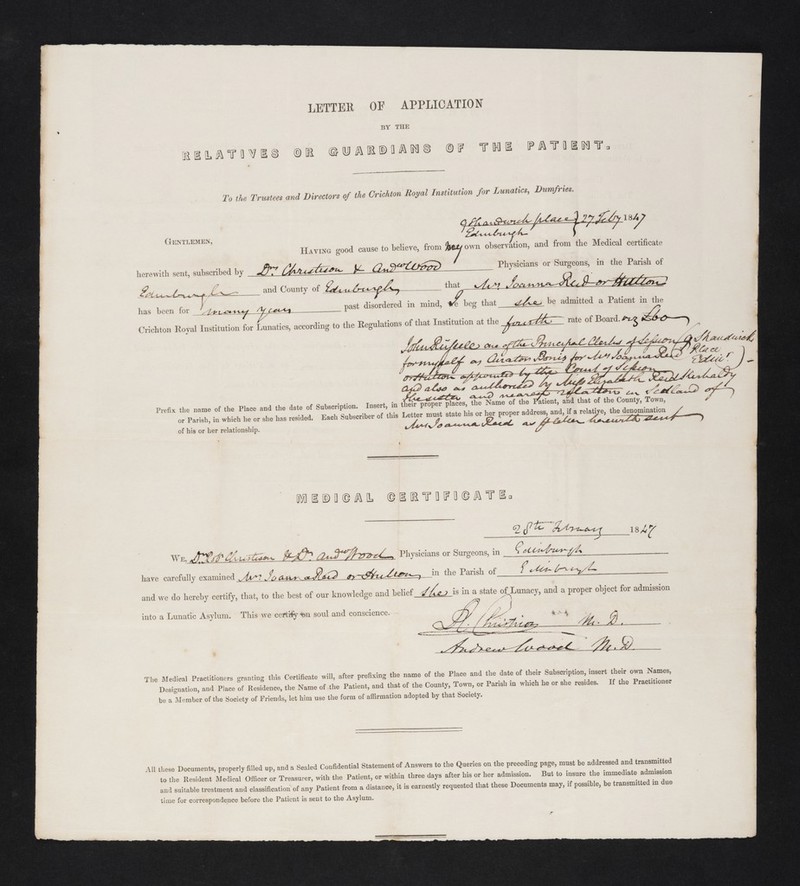 LETTER OF APPLICATION
BY THE
RELATIVES OR GUARDIANS OF THE PATIENT.
To the Trustees and Directors of the Crichton Royal Institution for Lunatics, Dumfries.
9 Shandwick place } 27 Feby 1847
Edinburgh
GENTLEMEN,
HAVING good cause to believe, from my own observation, and from the Medical certificate
herewith sent, subscribed by Drs Christison & Andw Wood Physicians or Surgeons, in the Parish of
Edinburgh and County of Edinburgh that Mrs Joanna Reid or Hutton
has been for many years past disordered in mind, I beg that she be admitted a Patient in the
Crichton Royal Institution for Lunatics, according to the Regulations of that Institution at the fourth rate of Board. viz £60
John Russell one of the Principal Clerks of Session 9 Shandwick
for myself as Curator Bonis for Mrs Joanna Reid Place
or Hutton appointed by the Court of Session Edinr
and also as authorised by Miss Elizabeth Reid Kirkaldy
the sister and nearest relation in Scotland of
Mrs Joanna Reid as letter herewith sent
Prefix the name of the Place and the date of Subscription. Insert, in their proper places, the Name of the Patient, and that of the County, Town,
or Parish, in which he or she has resided. Each Subscriber of this Letter must state his or her proper address, and, if a relative, the denomination
of his or her relationship.
MEDICAL CERTIFICATE.
28th February 1847
WE, Christison & Dr Andw Wood Physicians or Surgeons, in Edinburgh
have carefully examined Mrs Joanna Reid or Hutton in the Parish of Edinburgh
and we do hereby certify, that, to the best of our knowledge and belief She is in a state of Lunacy, and a proper object for admission
into a Lunatic Asylum. This we certify on soul and conscience.
R. Christison M.D.
Andrew Wood M.D.
The Medical Practitioners granting this Certificate will, after prefixing the name of the Place and the date of their Subscription, insert their own Names,
Designation, and Place of Residence, the Name of the Patient, and that of the County, Town, or Parish in which he or she resides. If the Practitioner
be a Member of the Society of Friends, let him use the form of affirmation adopted by that Society.
All these Documents, properly filled up, and a Sealed Confidential Statement of Answers to the Queries on the preceding page, must be addressed and transmitted
to the Resident Medical Officer or Treasurer, with the Patient, or within three days after his or her admission. But to insure the immediate admission
and suitable treatment and classification of any Patient from a distance, it is earnestly requested that these Documents may, if possible, be transmitted in due
time for correspondence before the Patient is sent to the Asylum.